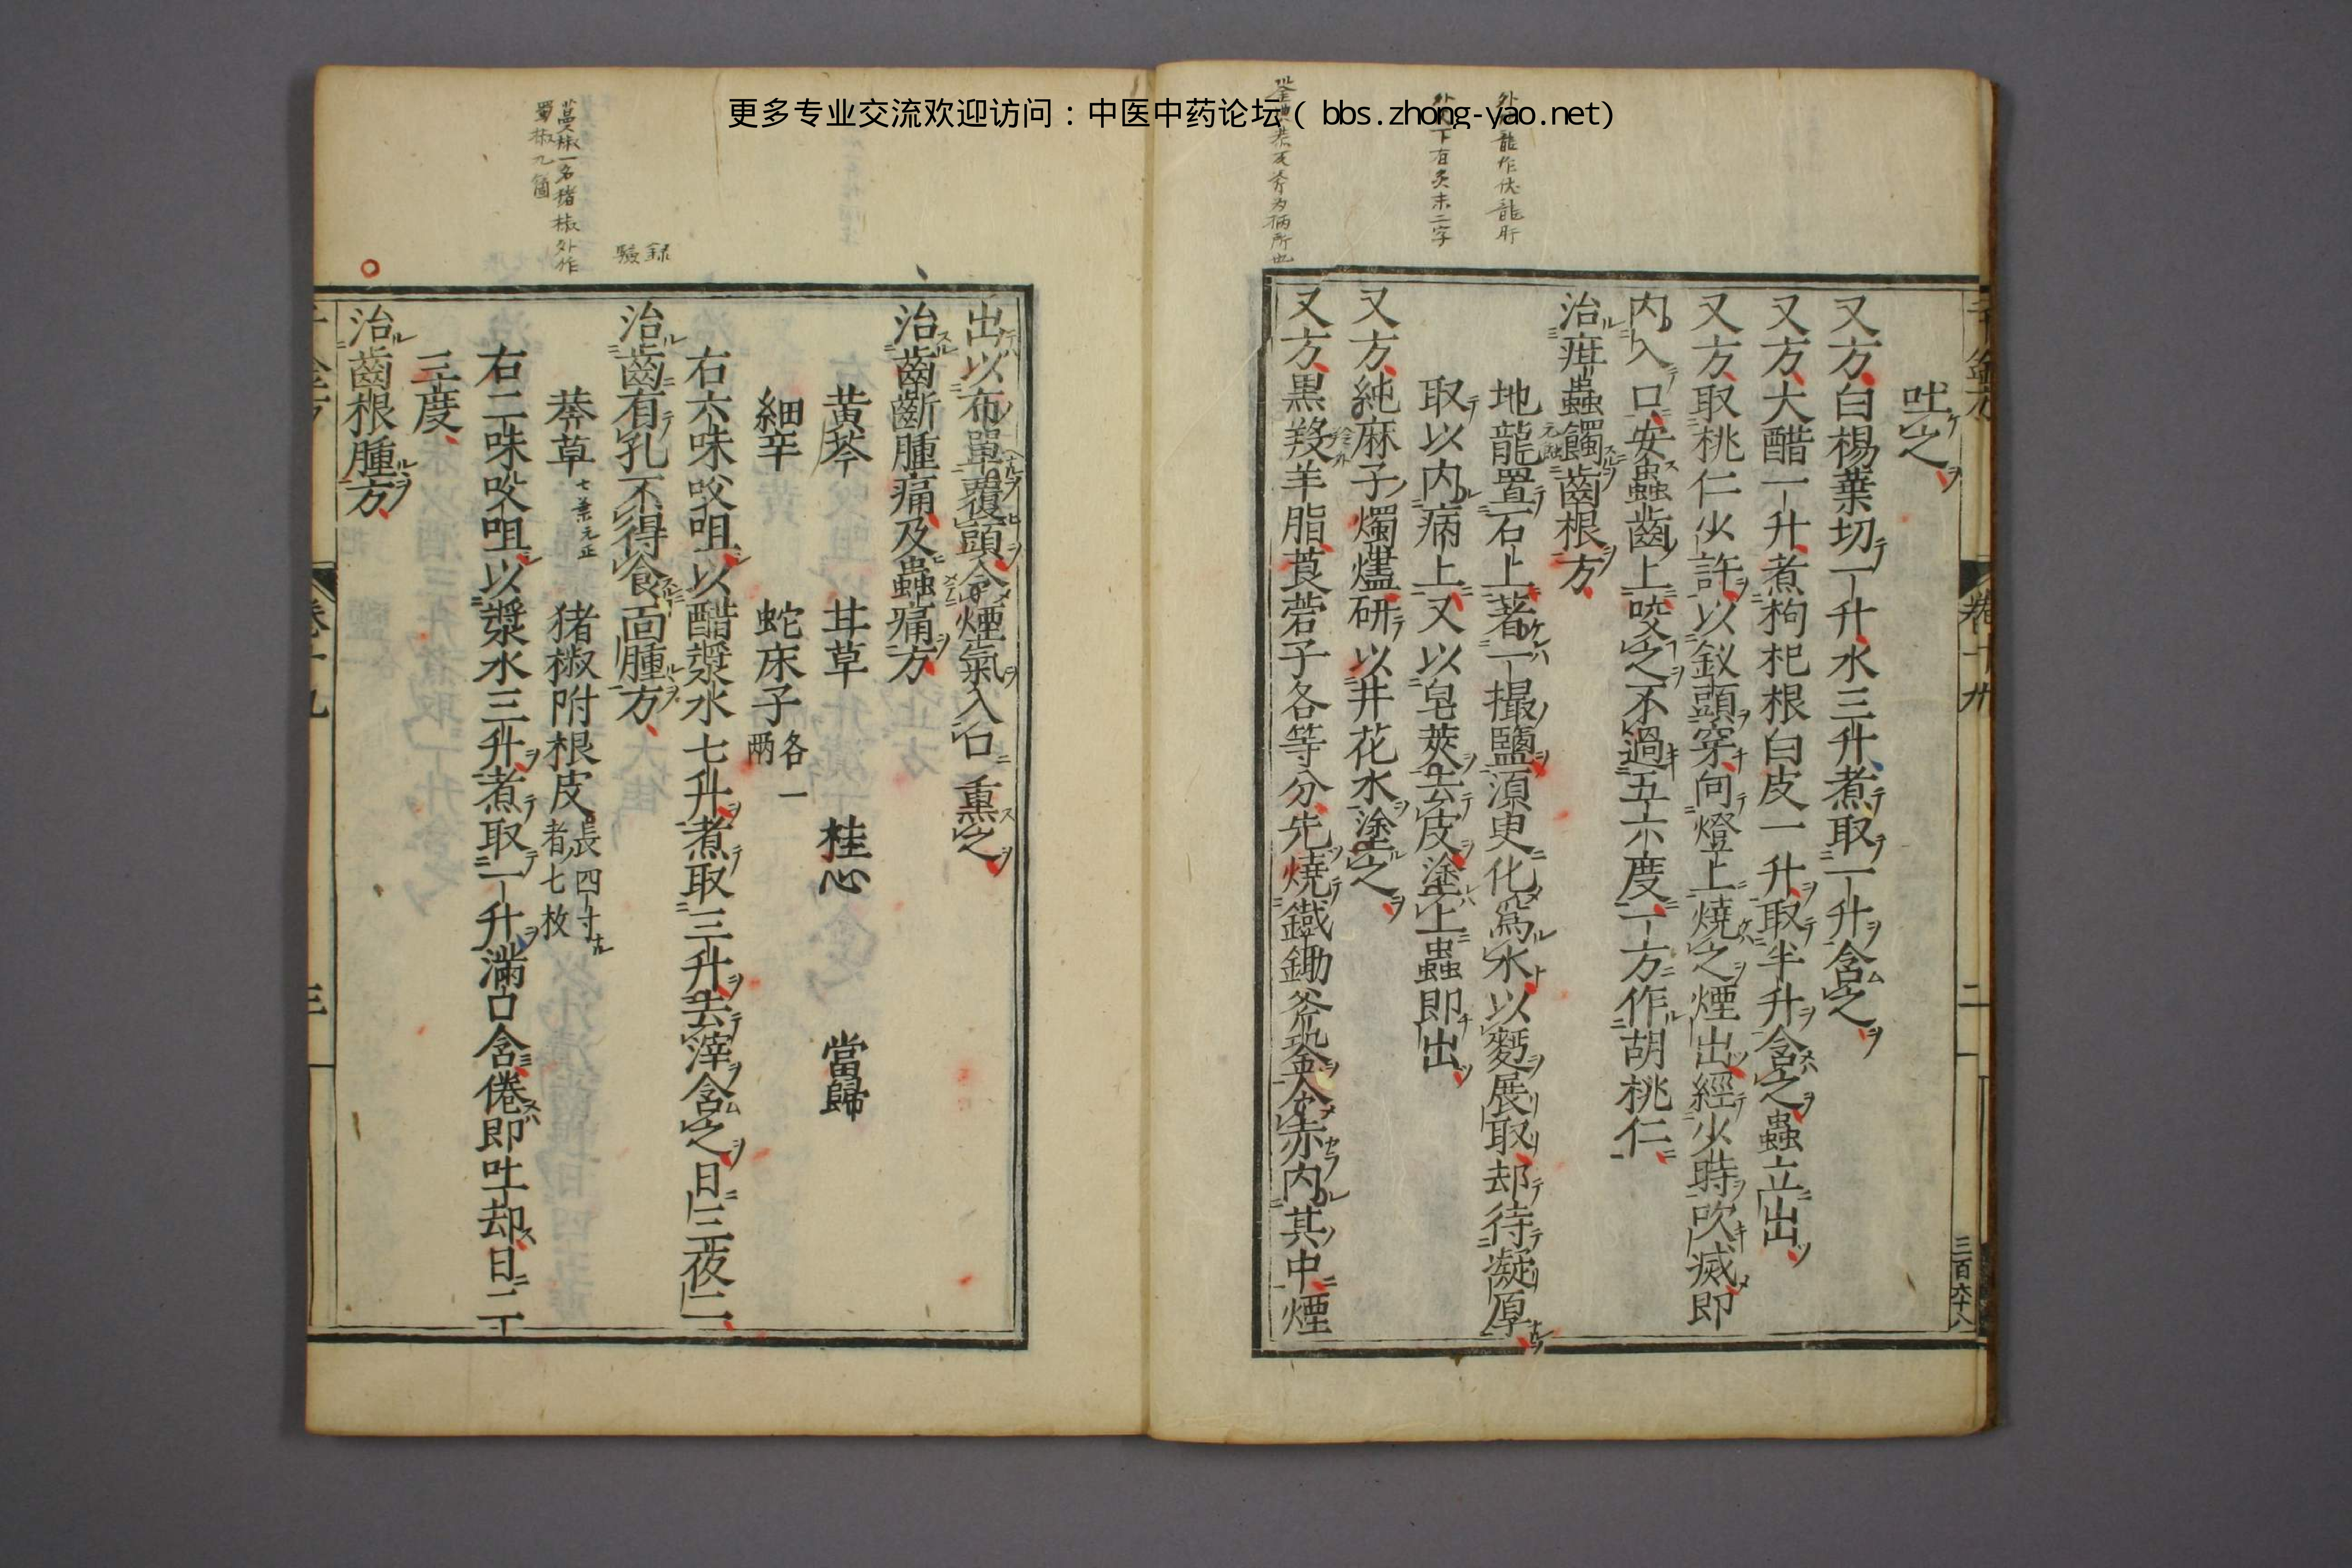 更多专业交流欢迎访问：中医中药论坛（bbs.zhong-yao.net）
卷十九
二
三百六十八
吐之
又方白楊葉切一升水三升煮取一升含之
又方大醋一升煮枸杞根白皮一升取半升含之蟲立出
又方取桃仁少許以釵頭穿向燈上燒之煙出經少時吹滅即
内入口安蟲齒上咬之不過五六度一方作胡桃仁
治疳蟲䘌齒根方
地龍置石上著一撮鹽須臾化爲水以麪展取却待凝厚
取以内病上又以皂莢去皮塗上蟲即出
又方純麻子燭燼研以井花水塗之
又方黒羖羊脂莨菪子各等分先燒鐵鋤斧銎令赤内其中煙
下有炙末二字
龍作伏龍肝
出以布單覆頭令煙氣入口熏之
治齒齗腫痛及蟲痛方
黄芩 甘草 桂心 當歸
細辛 蛇床子各一兩
右六味㕮咀以醋漿水七升煮取三升去滓含之日三夜二
治齒有孔不得食面腫方
莽草七葉 猪椒附根皮長四寸者七枚
右二味㕮咀以漿水三升煮取一升滿口含倦即吐却日二
三度
治齒根腫方
録驗
蔓椒一名猪椒外作
蜀椒九箇
卷十九
三